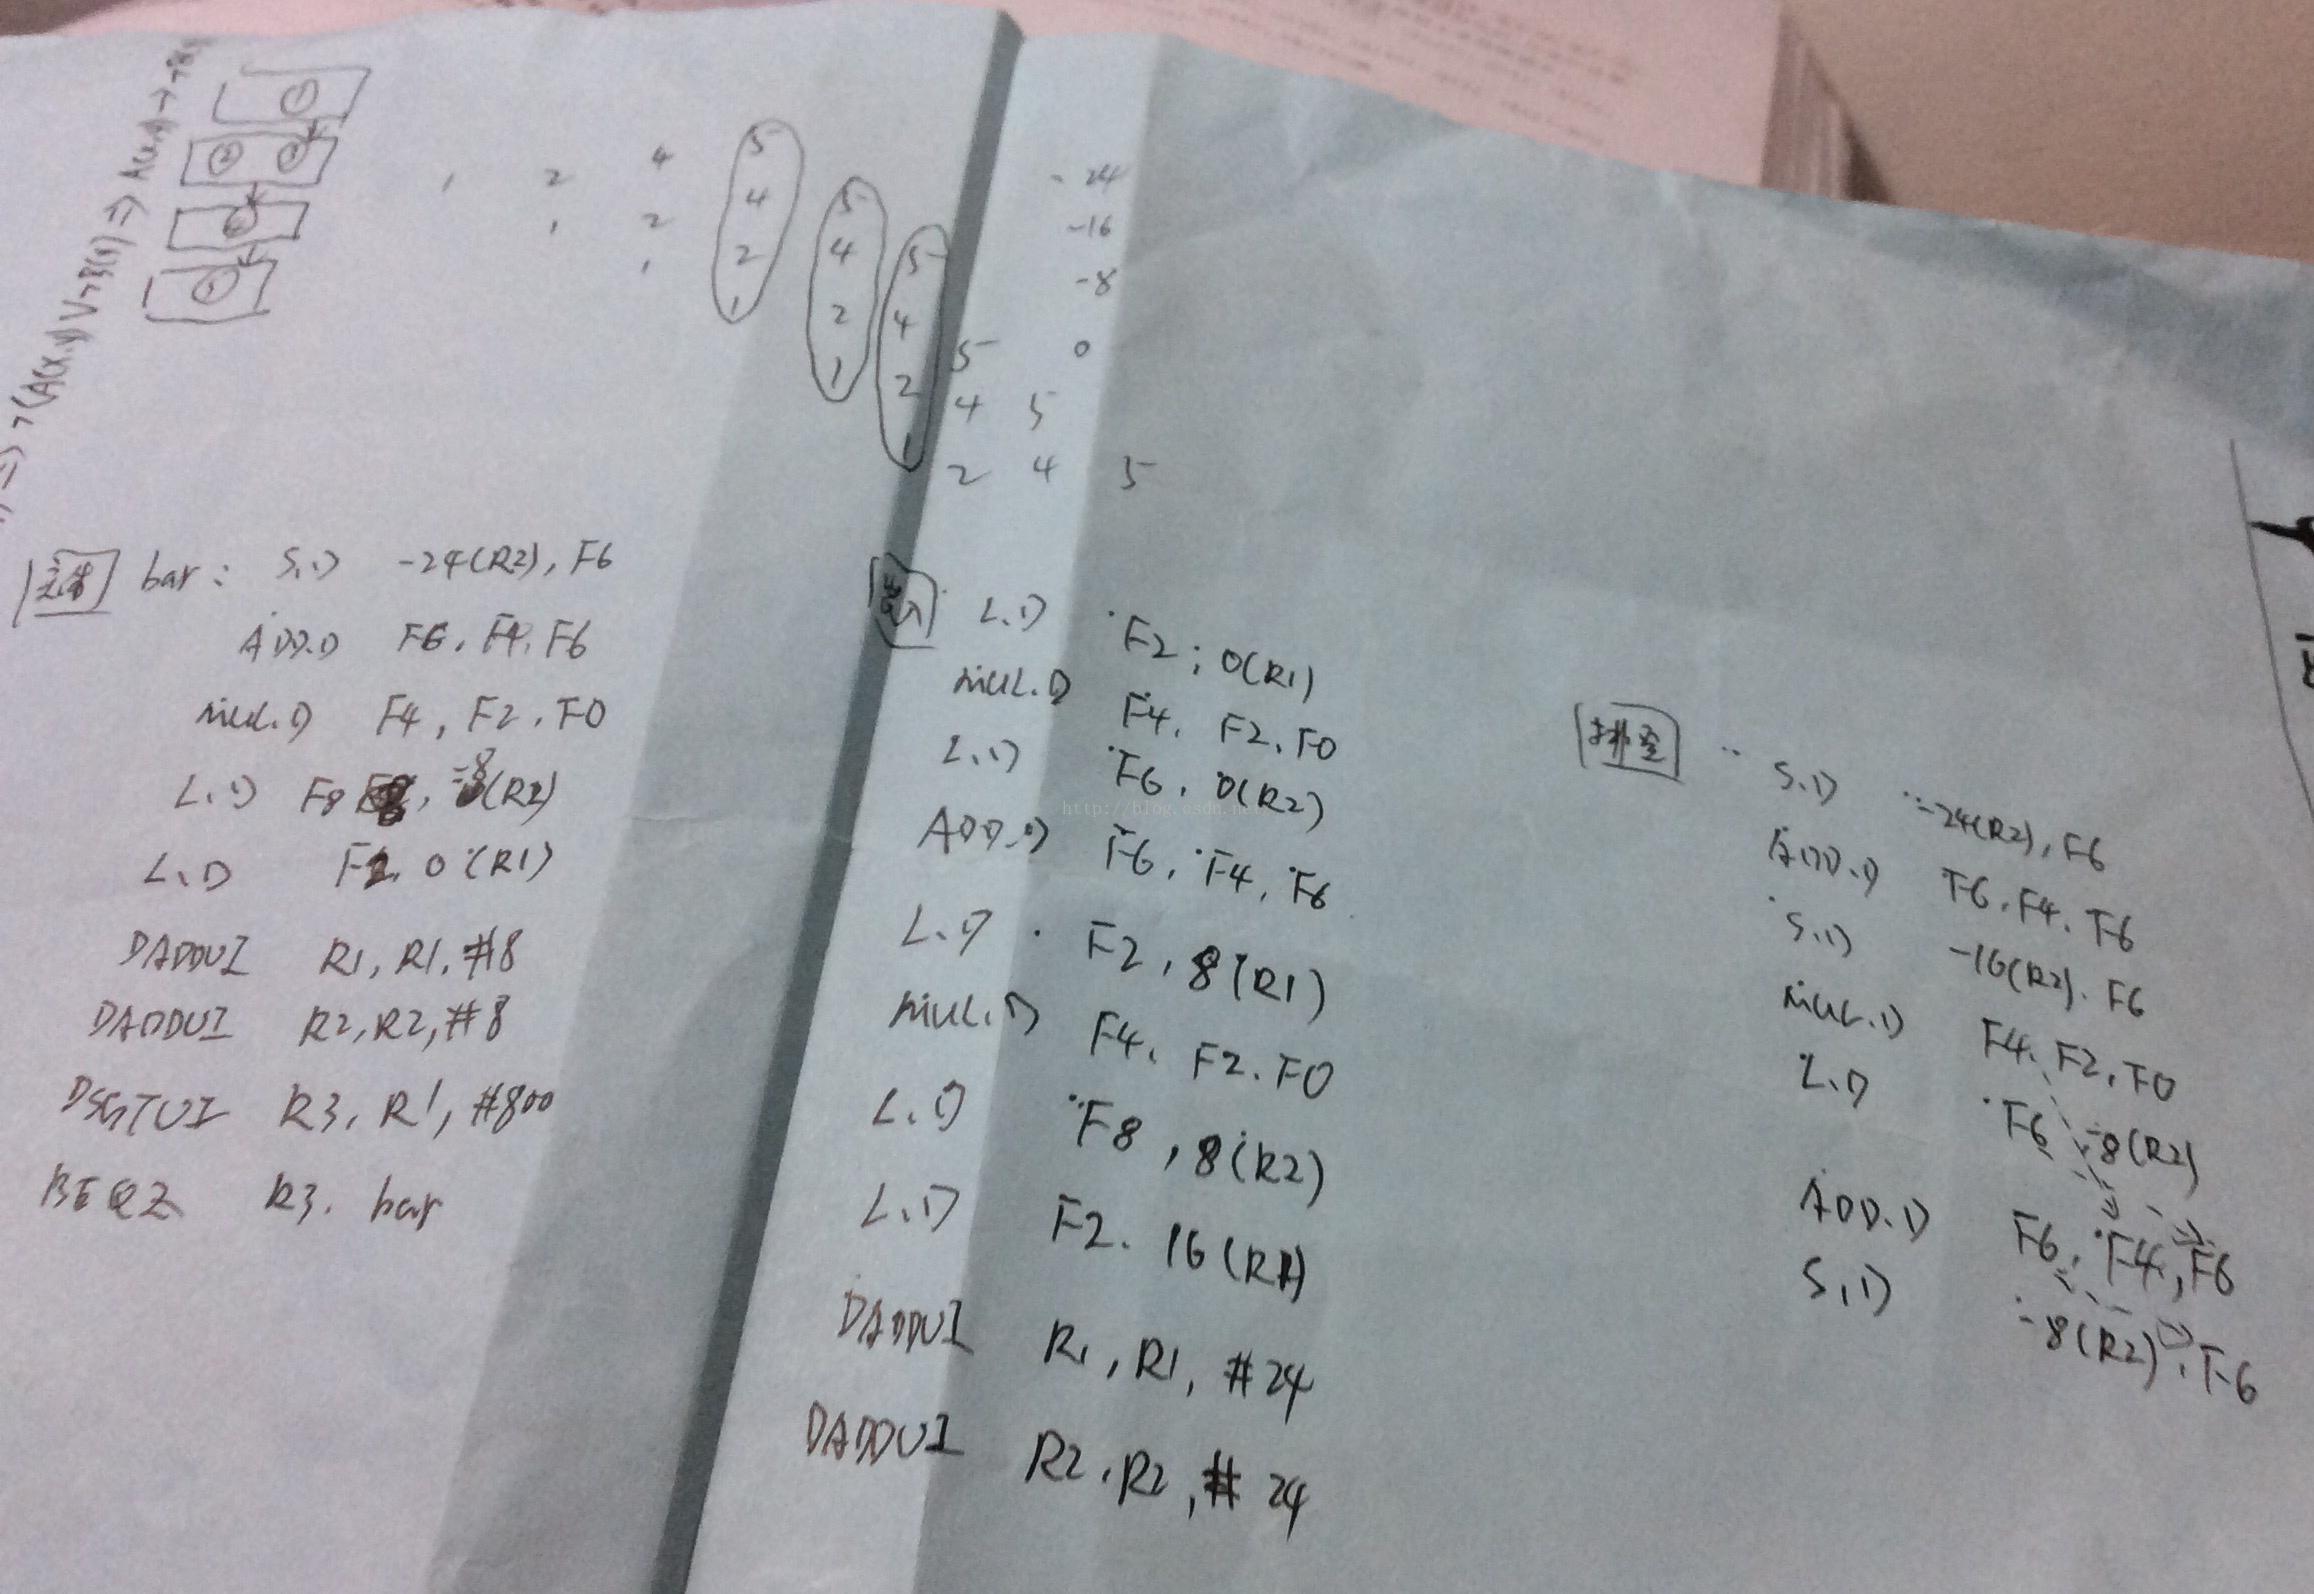 ⇒ ¬(A(x,y) ∨ ¬B(x)) ⇒ A(x,y) → ¬B(
1 2 4 5
1 2 4 5
1 2 4 5
1 2 4 5
1 2 4 5
1 2 4 5
-24
-16
-8
0
bar: S.D -24(R2), F6
ADD.D F6, F4, F6
MUL.D F4, F2, F0
L.D F8, -8(R2)
L.D F2, 0(R1)
DADDUI R1, R1, #8
DADDUI R2, R2, #8
DSGTUI R3, R1, #800
BEQZ R3, bar
L.D F2, 0(R1)
MUL.D F4, F2, F0
L.D F6, 0(R2)
ADD.D F6, F4, F6
L.D F2, 8(R1)
MUL.D F4, F2, F0
L.D F8, 8(R2)
L.D F2, 16(R1)
DADDUI R1, R1, #24
DADDUI R2, R2, #24
排空
S.D -24(R2), F6
ADD.D F6, F4, F6
S.D -16(R2), F6
MUL.D F4, F2, F0
L.D F6 -8(R2)
ADD.D F6, F4, F6
S.D -8(R2), F6
http://blog.csdn.net